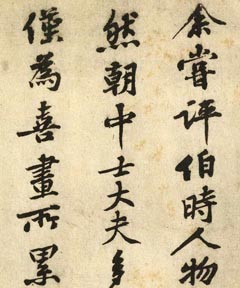 余嘗評伯時人物
然朝中士大夫多
僅為喜畫所累